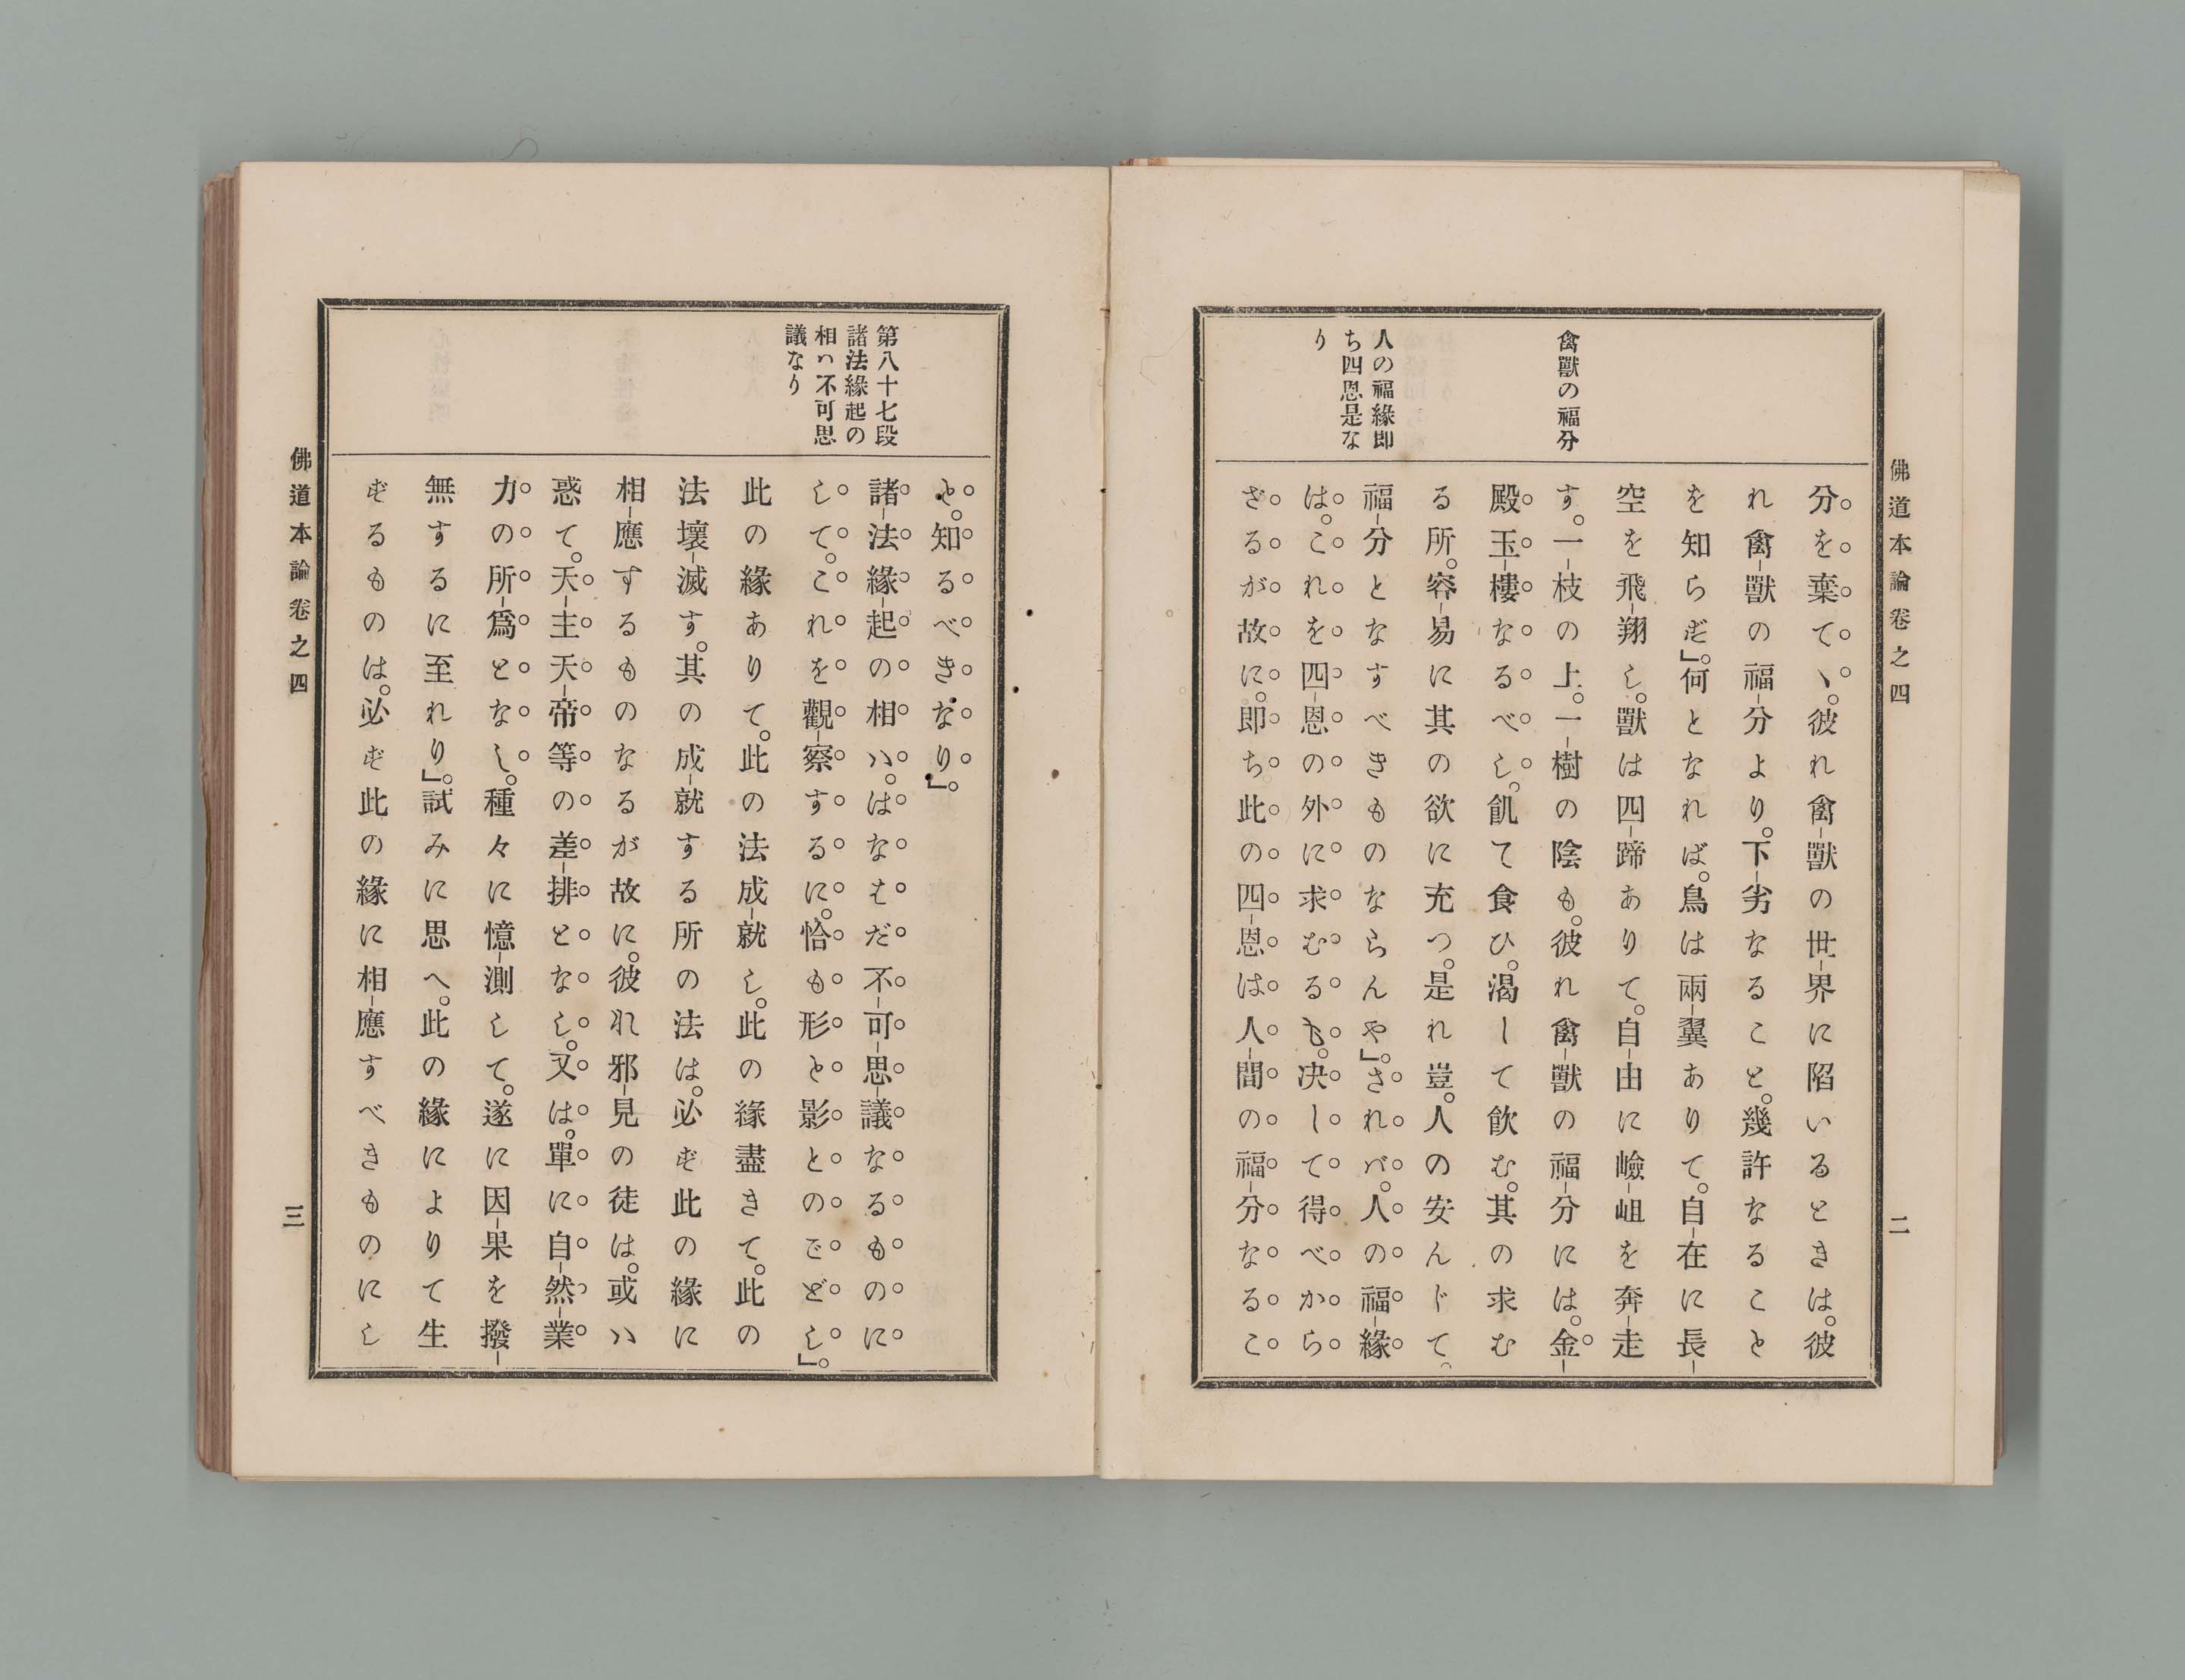 佛道本論卷之四
二
禽獸の福分
人の福緣即
ち四恩是な
り
分を棄てヽ。彼れ禽獸の世界に陷いるときは。彼
れ禽獸の福分より。下劣なること。幾許なること
を知らず』。何となれば。鳥は兩翼ありて。自在に長
空を飛翔し。獸は四蹄ありて。自由に嶮岨を奔走
す。一枝の上。一樹の陰も。彼れ禽獸の福分には。金
殿玉樓なるべし。飢て食ひ。渴して飮む。其の求む
る所。容易に其の欲に充つ。是れ豈。人の安んじて。
福分となすべきものならんや』。されバ。人の福緣
は。これを四恩の外に求むるも。决して得べから
ざるが故に。即ち此の四恩は人間の福分なるこ
と。知るべきなり』。
第八十七段
諸法緣起の
相ハ不可思
議なり
諸法緣起の相ハ。はなはだ不可思議なるものに
して。これを觀察するに。恰も形と影とのごどし』。
此の緣ありて。此の法成就し。此の緣盡きて。此の
法壞滅す。其の成就する所の法は。必ず此の緣に
相應するものなるが故に。彼れ邪見の徒は。或ハ
惑て。天主天帝等の差排となし。又は。單に自然業
力の所爲となし。種々に憶測して。遂に因果を撥
無するに至れり』。試みに思へ。此の緣によりて生
ずるものは。必ず此の緣に相應すべきものにし
佛道本論卷之四
三